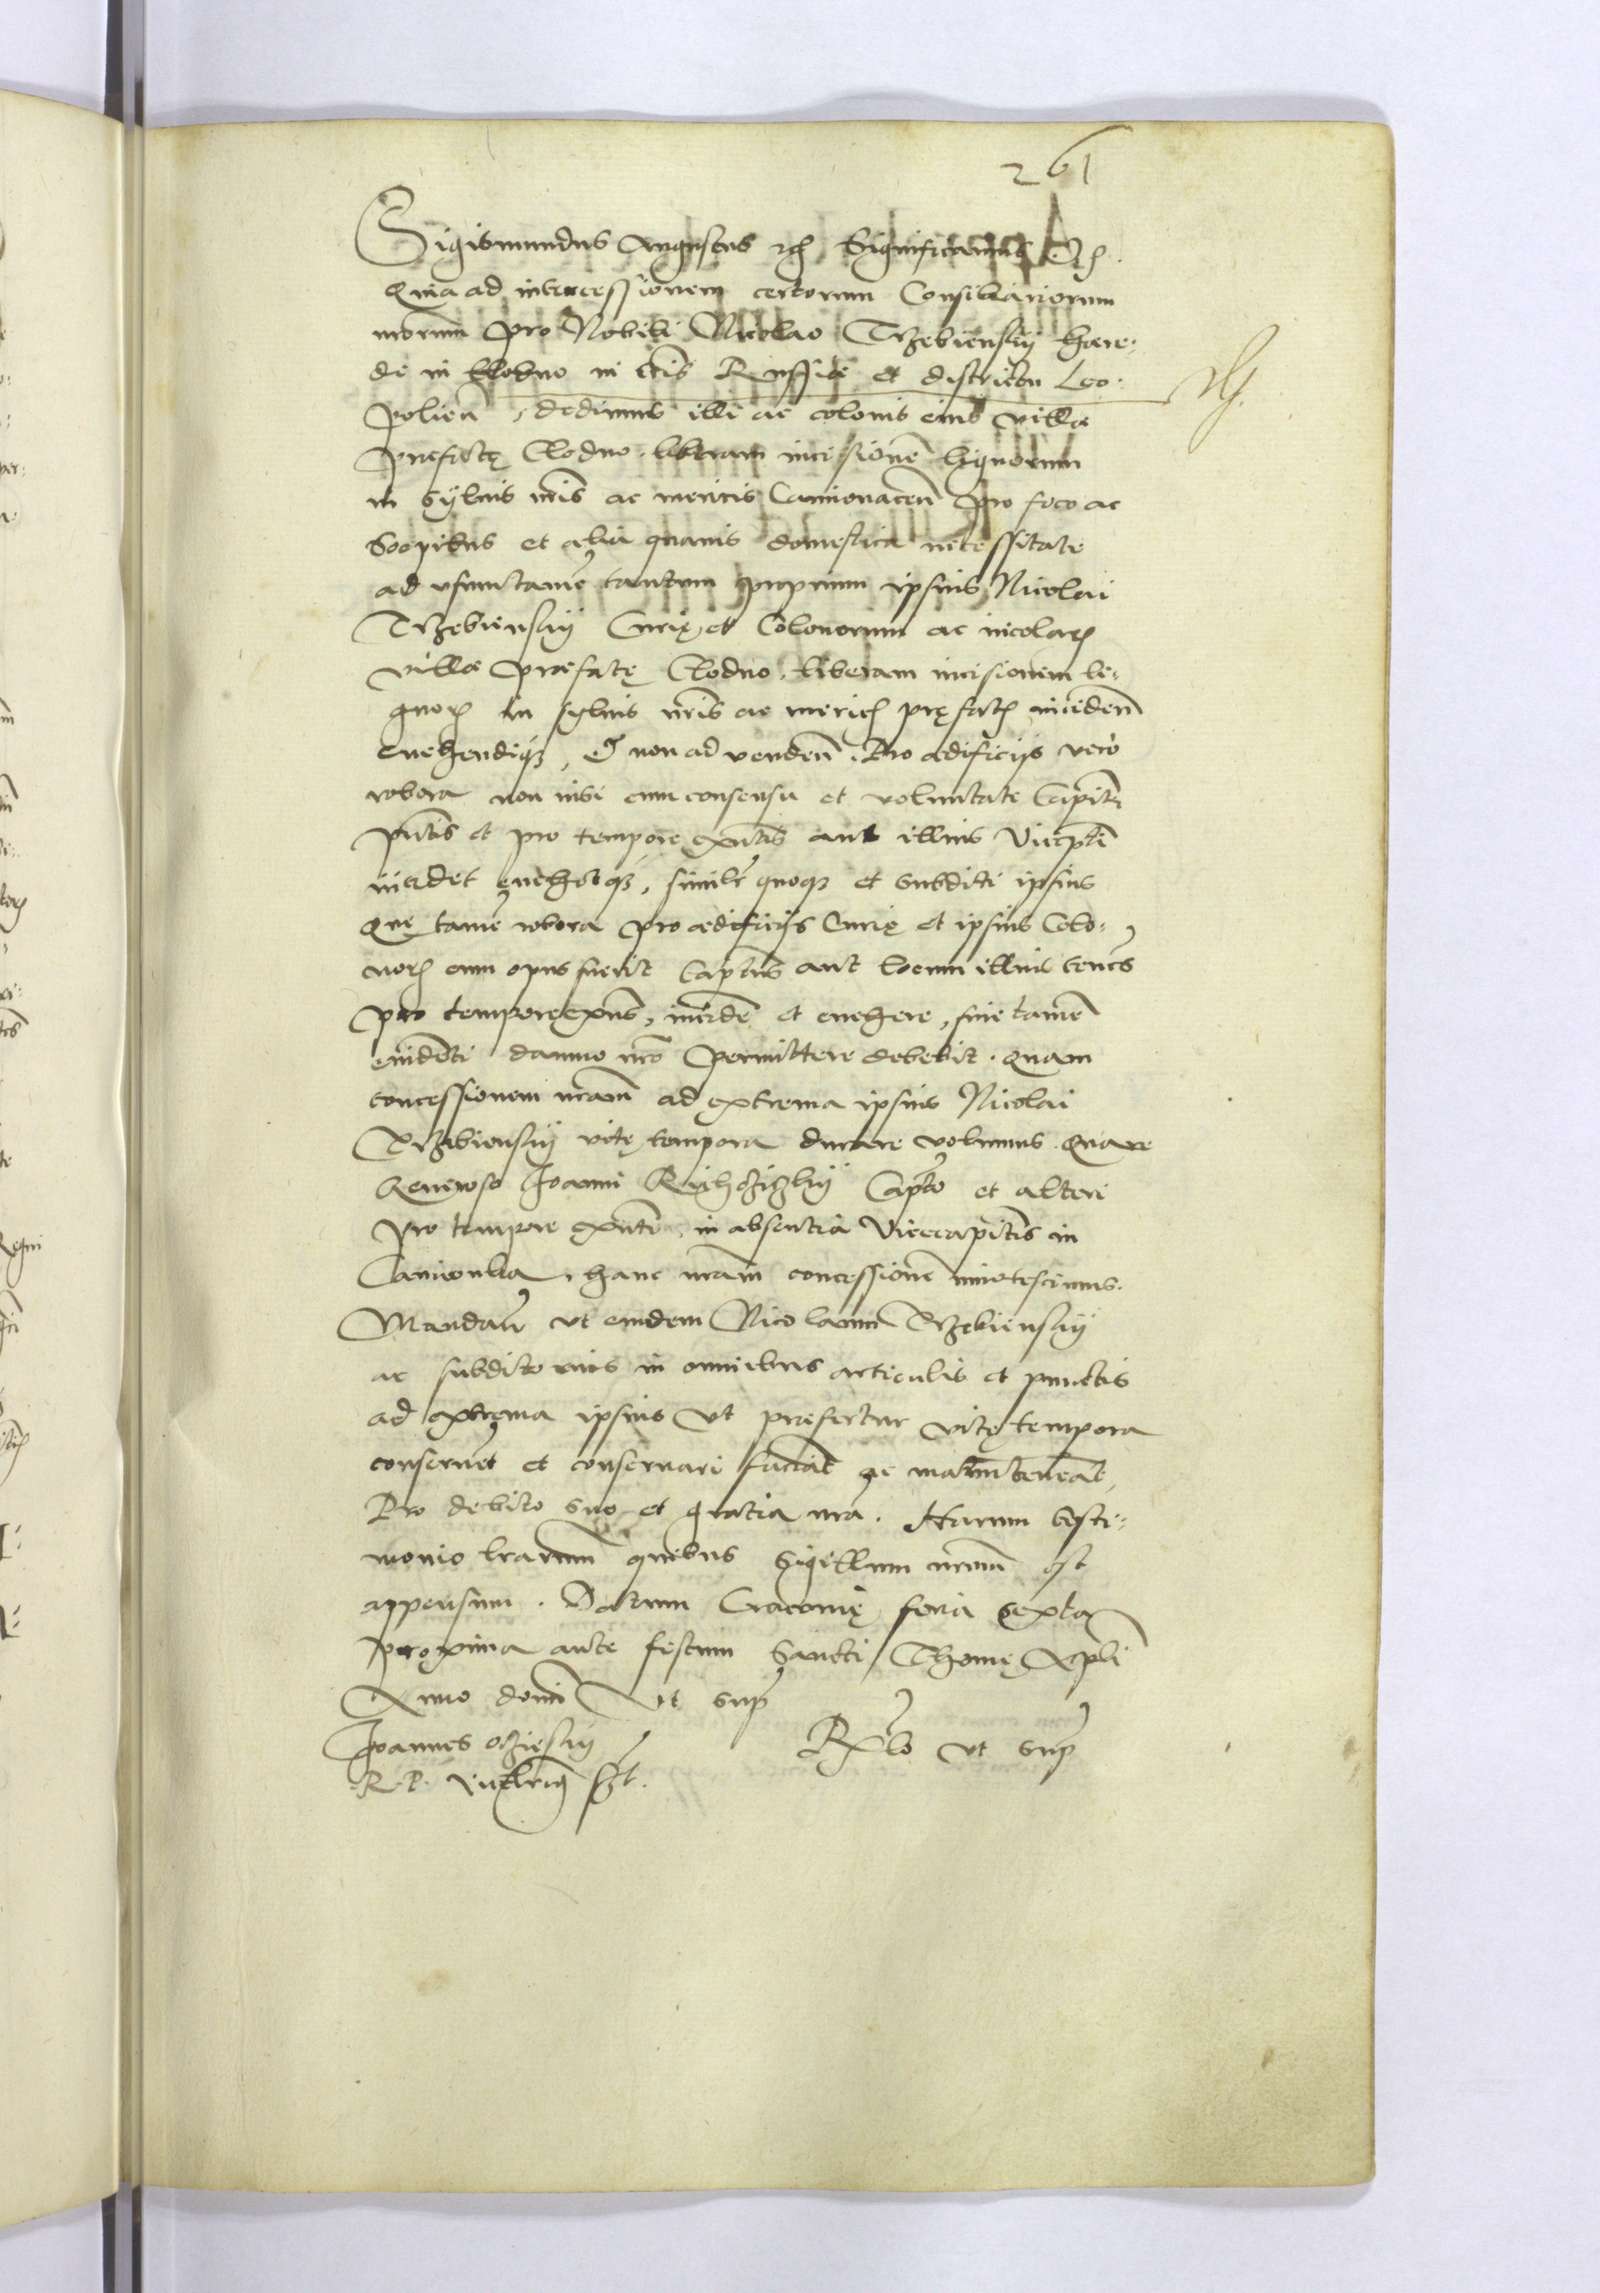 261
Sigismundus Augustus etc Significamus etc.
Quia ad intercessionem certorum Consiliariorum
nrorum pro Nobili Nicolao Trzebiensky hære:
de in Rodno in tris Russiæ et districtu Leo:
polien, dedimus illi ac colonis eius villæ
præfatę Rodno liberam incisionẽ lignorum
in sylvis nris ac mericis Camionacen pro foco ac
soepibus et alia quavis domestica necessitate
ad usum tamẽ tantum proprium ipsius Nicolai
Trzebiensky Curię et Colonorum ac incolarum
villæ præfatę Rodno liberam incisionem li:
gnorum in sylvis nris ac mericis pręfatis inciden
evehendique, et non ad venden. Pro ædificijs vero
robora non nisi cum consensu et voluntate Capitan
pntis et pro tempore exntis aut illius Vicecapti
incidet evehetque, similr quoque et subditi ipsius
Que tamẽ robora pro ædificijs Curię et ipsius Colo:
norum cum opus fuerit Captus aut locum illius tenens
pro tempore exns, incidẽ et evehere, sine tamẽ
evidẽti damno nro permittere debebit. Quam
concessionem nram ad extrema ipsius Nicolai
Trzebiensky vitę tempora durare volumus. Quare
Generoso Joanni Capto et alteri
pro tempore exnti, in absentia Vicecapitis in
Camionka, hanc nram concessionẽ innotescimus.
Mandan ut eundem Nicolaum Trzebiensky
ac subditos eius in omnibus articulis et punctis
ad extrema ipsius ut præfertur vitę tempora
conservet et conservari faciat ac manuteneat,
Pro debito suo et gratia nra. Harum testi:
monio lrarum quibus Sigillum nrum est
appensum. Datum Cracovię feria sexta
proxima ante festum Sancti Thomę Apli
Anno domi ut supra
Joannes Oczięsky
R. P. Vicecancellarius sszt.
Rlo ut supra